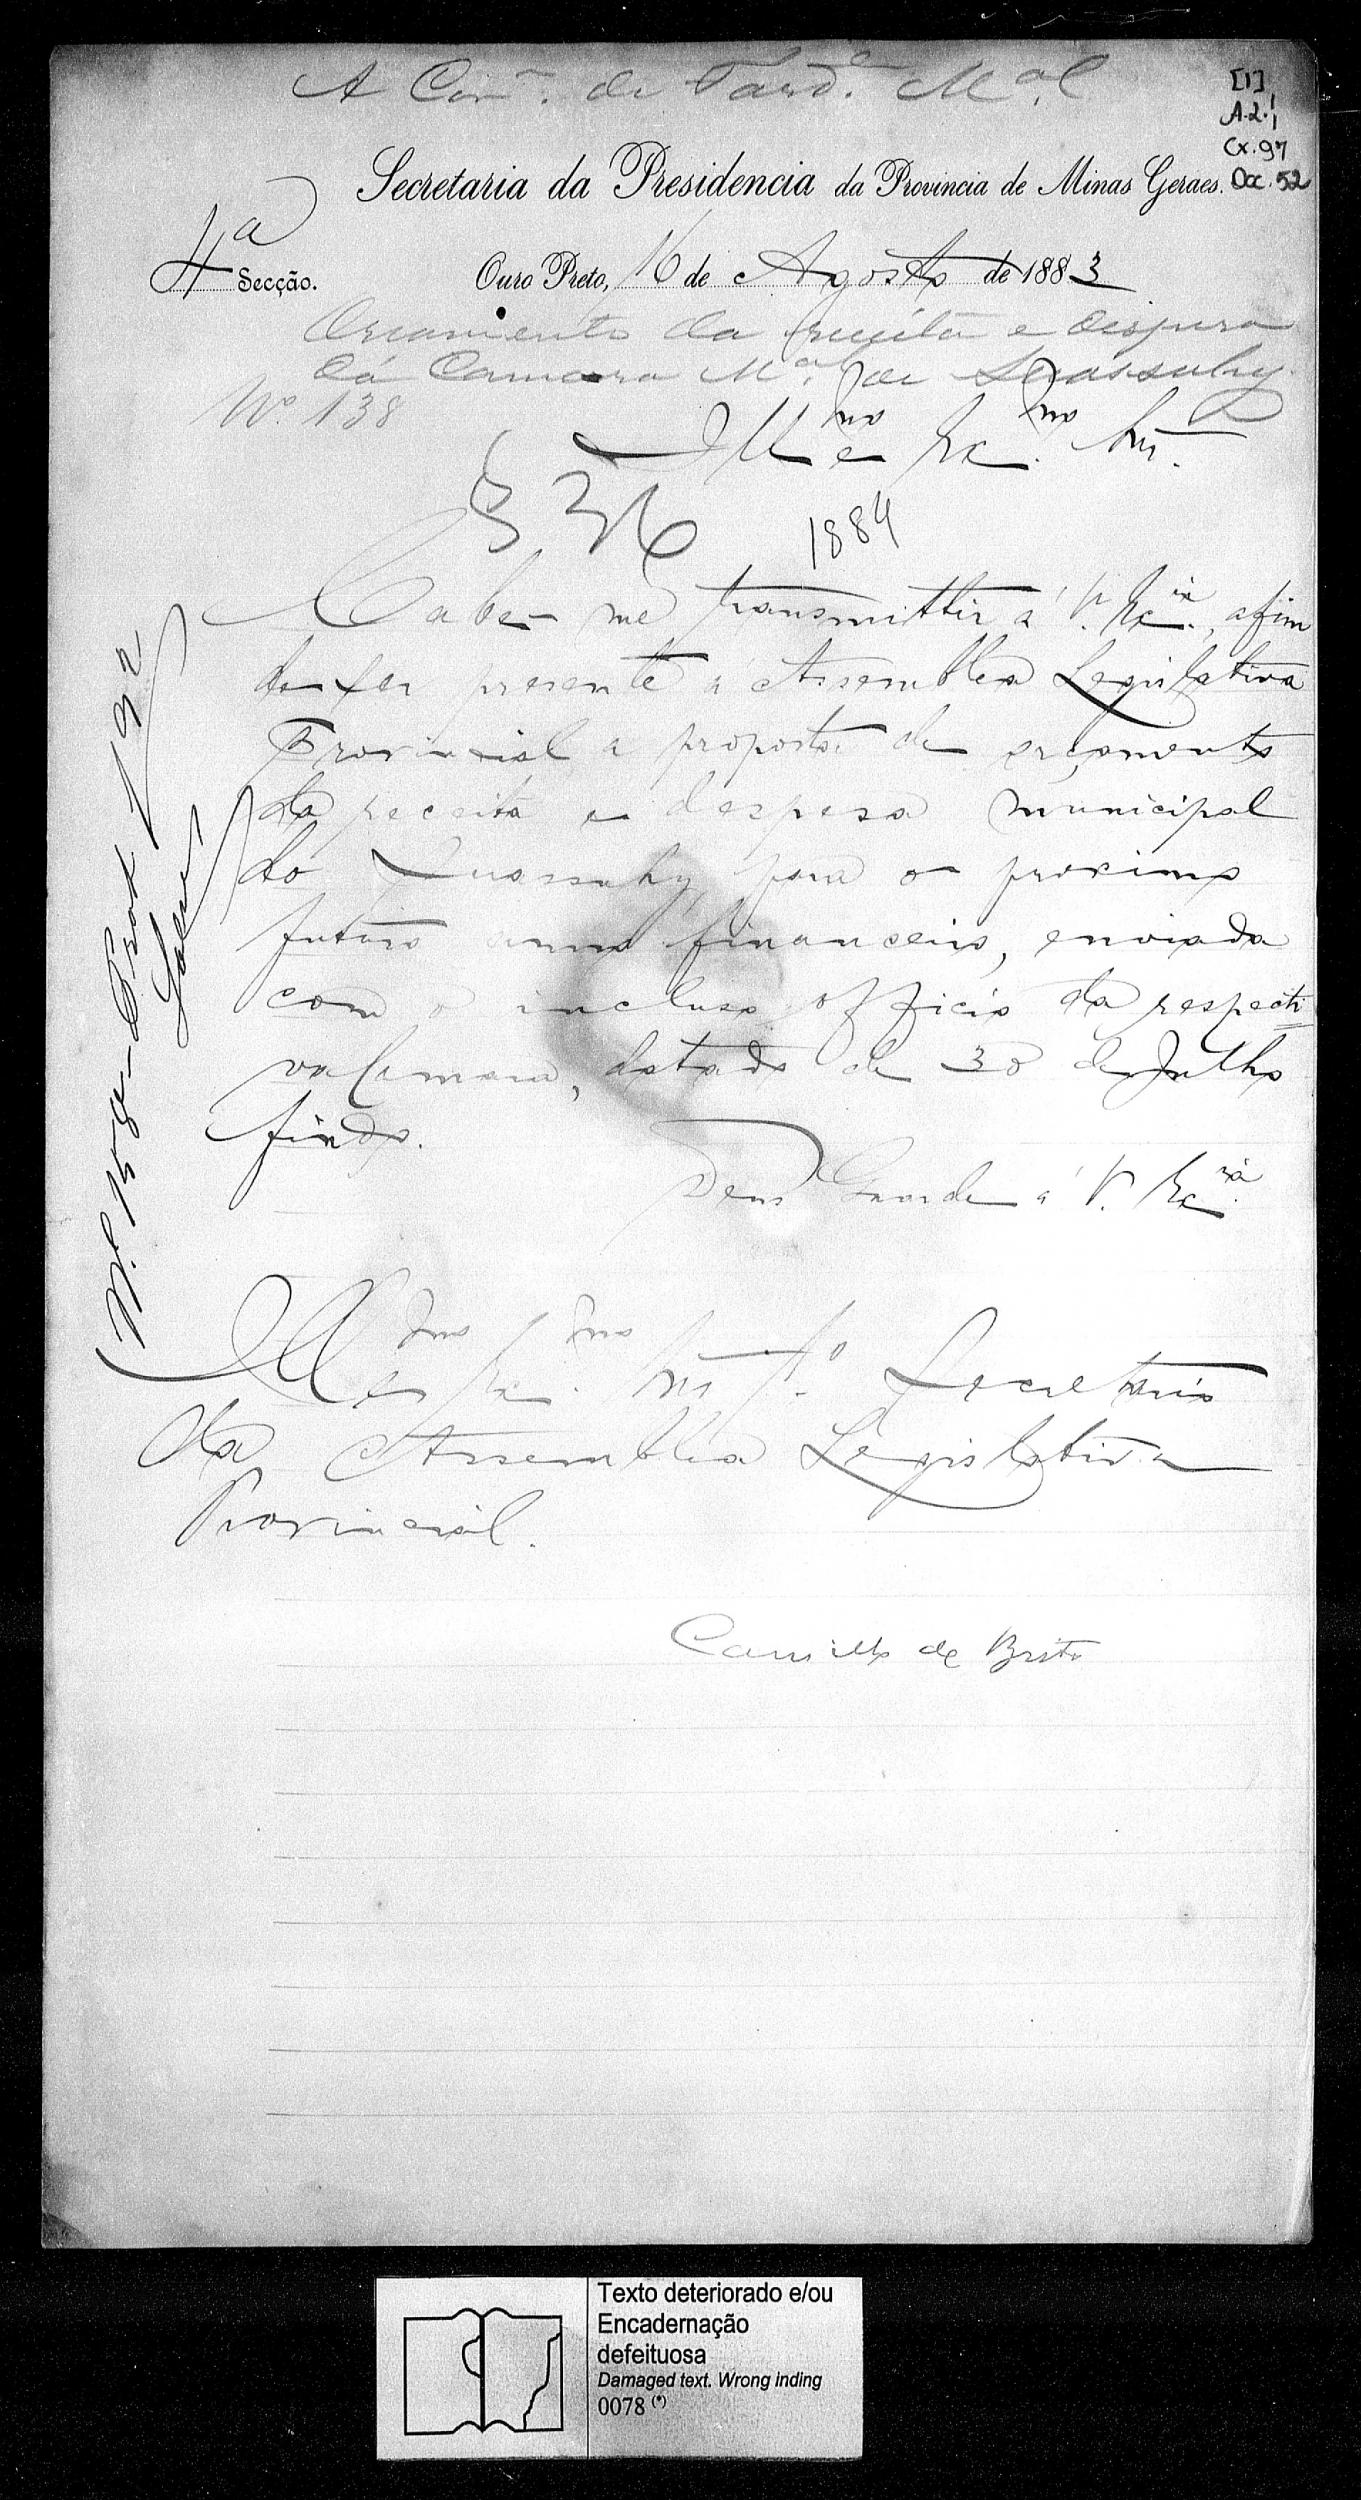 A Com.ᵐ de Fazd.ᵃ M.ᵃˡ
[1]
A.2.1
Cx. 97
Doc. 52
Secretaria da Presidencia da Provincia de Minas Geraes.
4ª Secção. Ouro Preto, 16 de Agosto de 1883
Orcamento da receita e despesa
da Camara M.ᵃˡ de Suassuhy.
Nº 138
Illᵐᵒ e Exᵐᵒ Snr.
§ 36 1884
Cabe-me transmittir á V. Exᶜⁱᵃ, afim
de ser presente á Assemblea Legislativa
Provincial a proposta de orçamento
da receita e despesa municipal
do Suassuhy, para o proximo
futuro anno financeiro, enviada
com o incluso officio da respecti
va Camara, datado de 30 de Julho
findo.
Deus Guarde á V. Exᶜⁱᵃ
Illᵐᵒ e Exᵐᵒ Snr 1º Secretario
da Assemblea Legislativa
Provincial.
Camillo de Brito
Texto deteriorado e/ou
Encadernação
defeituosa
Damaged text. Wrong inding
0078 (*)